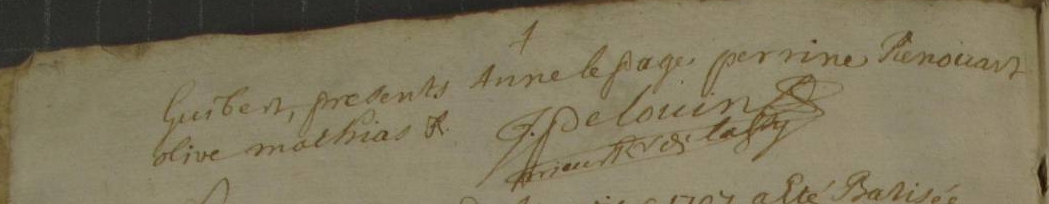 Guibert, presents Anne le page, perrine Renouart
olive mathias &.
J. Pelouin
prieur Rr de lassy
1707 a Eté Batisée